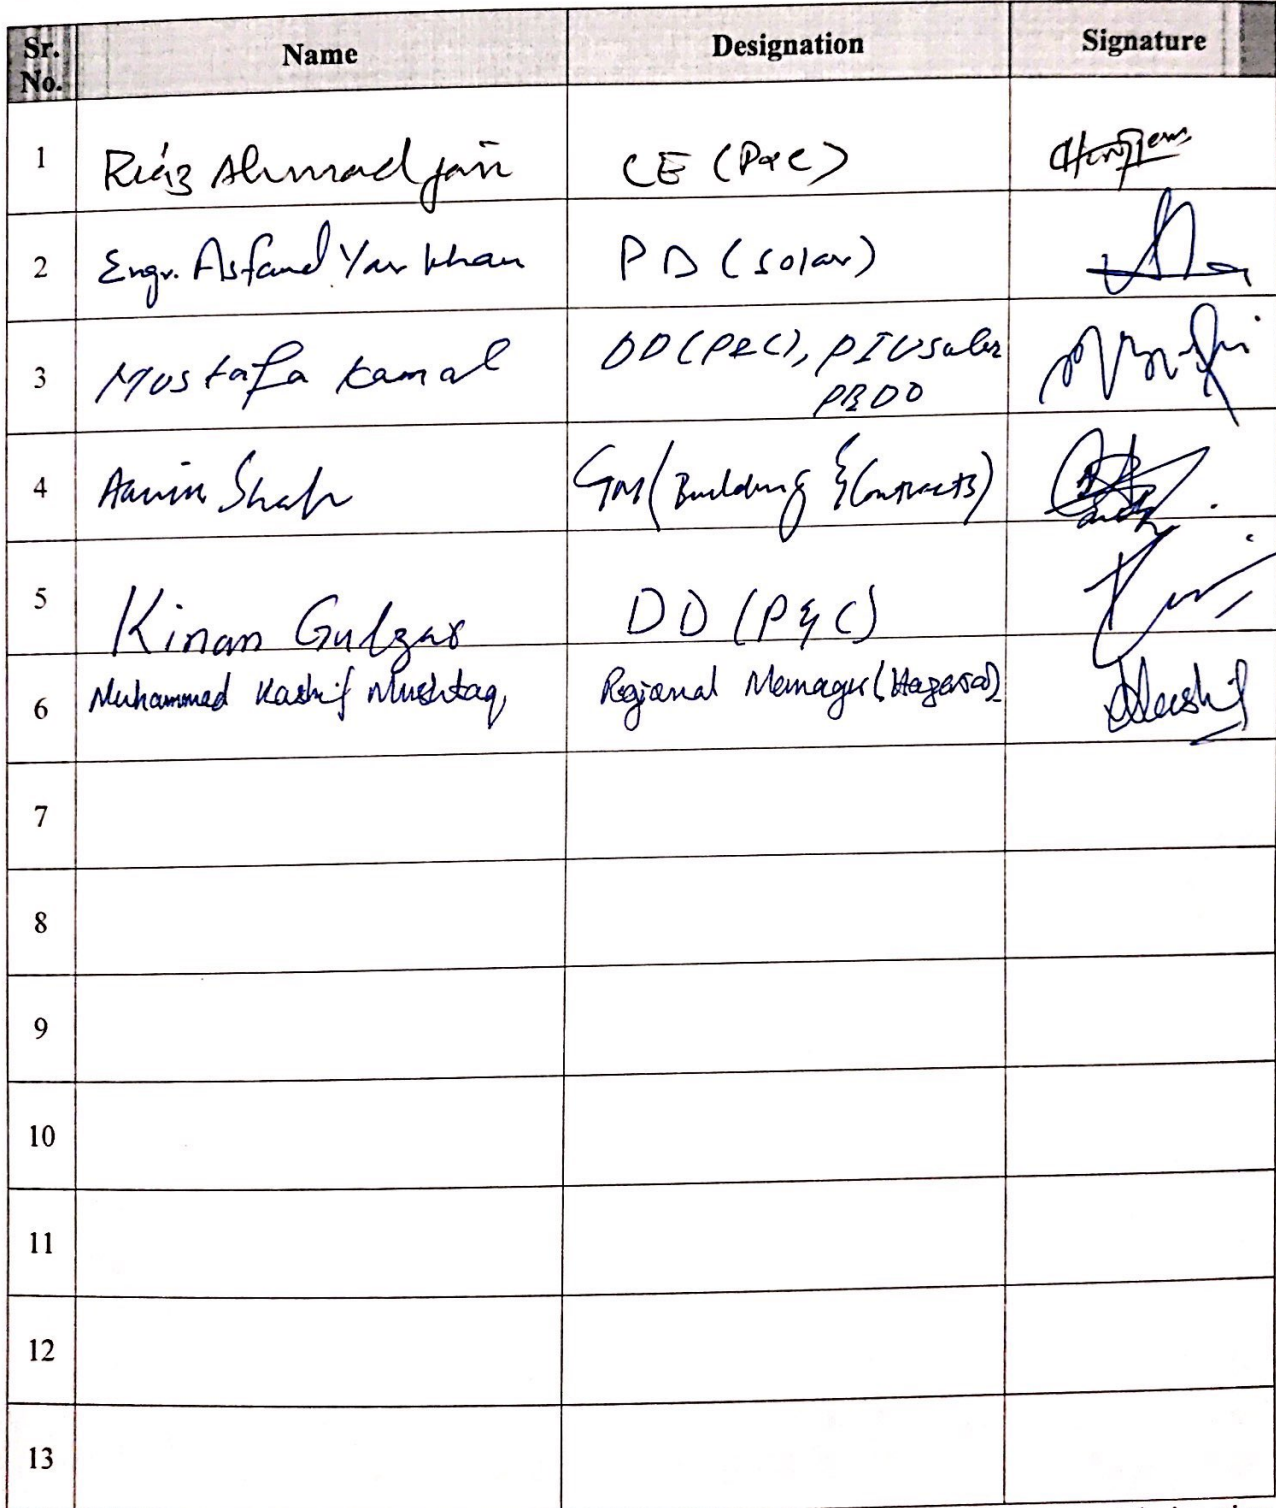 Sr. No. Name Designation Signature
1 Riaz Ahmad Jan CE (P&C)
2 Engr. Asfand Yar Khan PD (Solar)
3 Mustafa Kamal DD (P&C), PIU Solar
PEDO
4 Amin Shah GM (Building & Contracts)
5 Kinan Gulzar DD (P&C)
6 Muhammad Kashif Mushtaq, Regional Manager (Hazara) Kashif
7
8
9
10
11
12
13